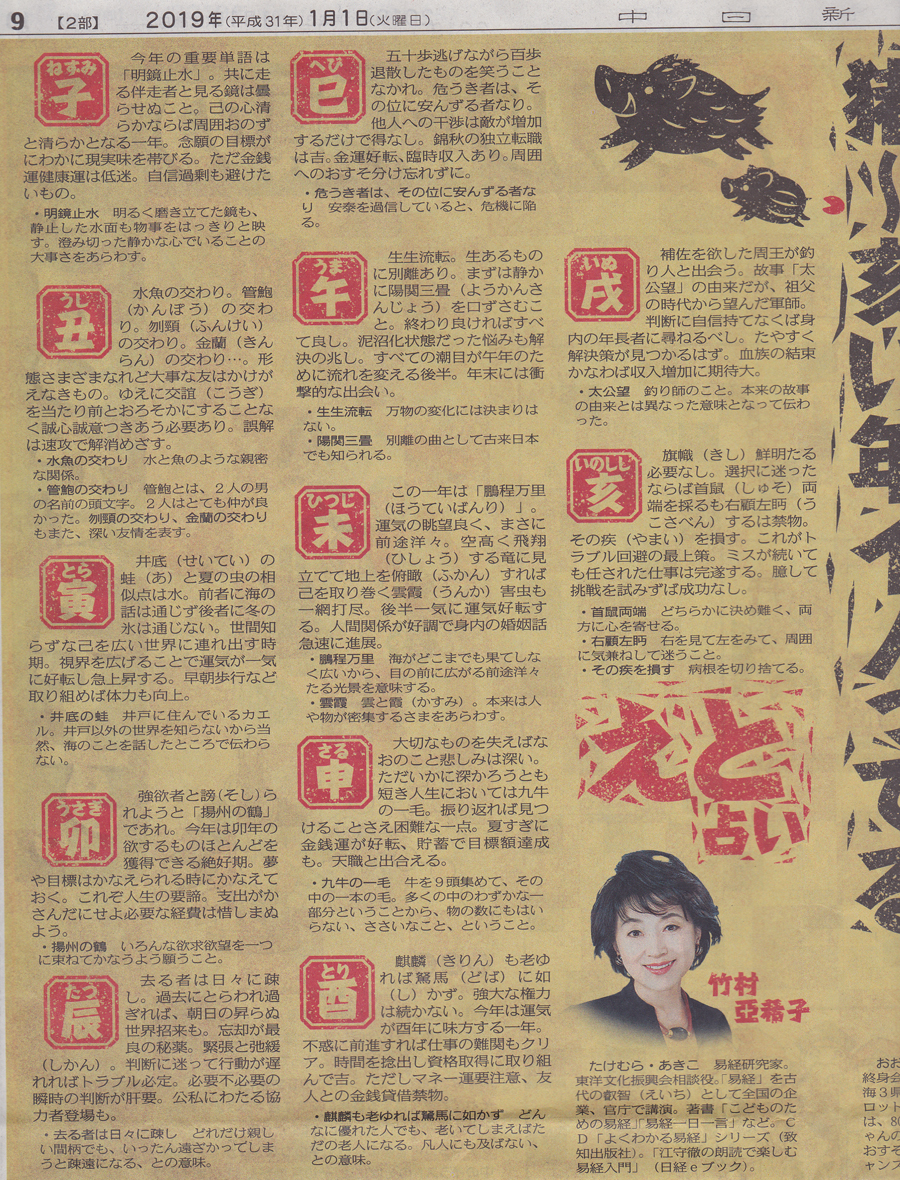 9 【2部】 2019年(平成31年)1月1日(火曜日) 中日新
ねずみ
子
今年の重要単語は
「明鏡止水」。共に走
る伴走者と見る鏡は曇
らせぬこと。己の心清
らかならば周囲おのず
と清らかとなる一年。念願の目標が
にわかに現実味を帯びる。ただ金銭
運健康運は低迷。自信過剰も避けた
いもの。
・明鏡止水 明るく磨き立てた鏡も、
静止した水面も物事をはっきりと映
す。澄み切った静かな心でいることの
大事さをあらわす。
うし
丑
水魚の交わり。管鮑
(かんぽう)の交わ
り。刎頸(ふんけい)
の交わり。金蘭(きん
らん)の交わり…。形
態さまざまなれど大事な友はかけが
えなきもの。ゆえに交誼(こうぎ)
を当たり前とおろそかにすることな
く誠心誠意つきあう必要あり。誤解
は速攻で解消めざす。
・水魚の交わり 水と魚のような親密
な関係。
・管鮑の交わり 管鮑とは、2人の男
の名前の頭文字。2人はとても仲が良
かった。刎頸の交わり、金蘭の交わり
もまた、深い友情を表す。
とら
寅
井底(せいてい)の
蛙(あ)と夏の虫の相
似点は水。前者に海の
話は通じず後者に冬の
氷は通じない。世間知
らずな己を広い世界に連れ出す時
期。視界を広げることで運気が一気
に好転し急上昇する。早朝歩行など
取り組めば体力も向上。
・井底の蛙 井戸に住んでいるカエ
ル。井戸以外の世界を知らないから当
然、海のことを話したところで伝わら
ない。
うさぎ
卯
強欲者と謗(そし)ら
れようと「揚州の鶴」
であれ。今年は卯年の
欲するものほとんどを
獲得できる絶好期。夢
や目標はかなえられる時にかなえて
おく。これぞ人生の要諦。支出がか
さんだにせよ必要な経費は惜しまぬ
よう。
・揚州の鶴 いろんな欲求欲望を一つ
に束ねてかなうよう願うこと。
たつ
辰
去る者は日々に疎
し。過去にとらわれ過
ぎれば、朝日の昇らぬ
世界招来も。忘却が最
良の秘薬。緊張と弛緩
(しかん)。判断に迷って行動が遅
れればトラブル必定。必要不必要の
瞬時の判断が肝要。公私にわたる協
力者登場も。
・去る者は日々に疎し どれだけ親し
い間柄でも、いったん遠ざかってしま
うと疎遠になる、との意味。
へび
巳
五十歩逃げながら百歩
退散したものを笑うこと
なかれ。危うき者は、そ
の位に安んずる者なり。
他人への干渉は敵が増加
するだけで得なし。錦秋の独立転職
は吉。金運好転、臨時収入あり。周囲
へのおすそ分け忘れずに。
・危うき者は、その位に安んずる者な
り 安泰を過信していると、危機に陥
る。
うま
午
生生流転。生あるもの
に別離あり。まずは静か
に陽関三畳(ようかんさ
んじょう)を口ずさむこ
と。終わり良ければすべ
て良し。泥沼化状態だった悩みも解
決の兆し。すべての潮目が午年のた
めに流れを変える後半。年末には衝
撃的な出会い。
・生生流転 万物の変化には決まりは
ない。
・陽関三畳 別離の曲として古来日本
でも知られる。
ひつじ
未
この一年は「鵬程万里
(ほうていばんり)」。
運気の眺望良く、まさに
前途洋々。空高く飛翔
(ひしょう)する竜に見
立てて地上を俯瞰(ふかん)すれば
己を取り巻く雲霞(うんか)害虫も
一網打尽。後半一気に運気好転す
る。人間関係が好調で身内の婚姻話
急速に進展。
・鵬程万里 海がどこまでも果てしな
く広いから、目の前に広がる前途洋々
たる光景を意味する。
・雲霞 雲と霞(かすみ)。本来は人
や物が密集するさまをあらわす。
さる
申
大切なものを失えばな
おのこと悲しみは深い。
ただいかに深かろうとも
短き人生においては九牛
の一毛。振り返れば見つ
けることさえ困難な一点。夏すぎに
金銭運が好転、貯蓄で目標額達成
も。天職と出合える。
・九牛の一毛 牛を9頭集めて、その
中の一本の毛。多くの中のわずかな一
部分ということから、物の数にもはい
らない、ささいなこと、ということ。
とり
酉
麒麟(きりん)も老ゆ
れば駑馬(どば)に如
(し)かず。強大な権力
は続かない。今年は運気
が酉年に味方する一年。
不惑に前進すれば仕事の難関もクリ
ア。時間を捻出し資格取得に取り組
んで吉。ただしマネー運要注意、友
人との金銭貸借禁物。
・麒麟も老ゆれば駑馬に如かず どん
なに優れた人でも、老いてしまえばた
だの老人になる。凡人にも及ばない、
との意味。
いぬ
戌
補佐を欲した周王が釣
り人と出会う。故事「太
公望」の由来だが、祖父
の時代から望んだ軍師。
判断に自信持てなくば身
内の年長者に尋ねるべし。たやすく
解決策が見つかるはず。血族の結束
かなわば収入増加に期待大。
・太公望 釣り師のこと。本来の故事
の由来とは異なった意味となって伝わ
った。
いのしし
亥
旗幟(きし)鮮明たる
必要なし。選択に迷った
ならば首鼠(しゅそ)両
端を採るも右顧左眄(う
こさべん)するは禁物。
その疾(やまい)を損す。これがト
ラブル回避の最上策。ミスが続いて
も任された仕事は完遂する。臆して
挑戦を試みずば成功なし。
・首鼠両端 どちらかに決め難く、両
方に心を寄せる。
・右顧左眄 右を見て左をみて、周囲
に気兼ねして迷うこと。
・その疾を損す 病根を切り捨てる。
えと
占い
竹村
亞希子
たけむら・あきこ 易経研究家。
東洋文化振興会相談役。「易経」を古
代の叡智(えいち)として全国の企
業、官庁で講演。著書「こどものた
めの易経」「易経一日一言」など。C
D「よくわかる易経」シリーズ(致
知出版社)。「江守徹の朗読で楽しむ
易経入門」(日経eブック)。